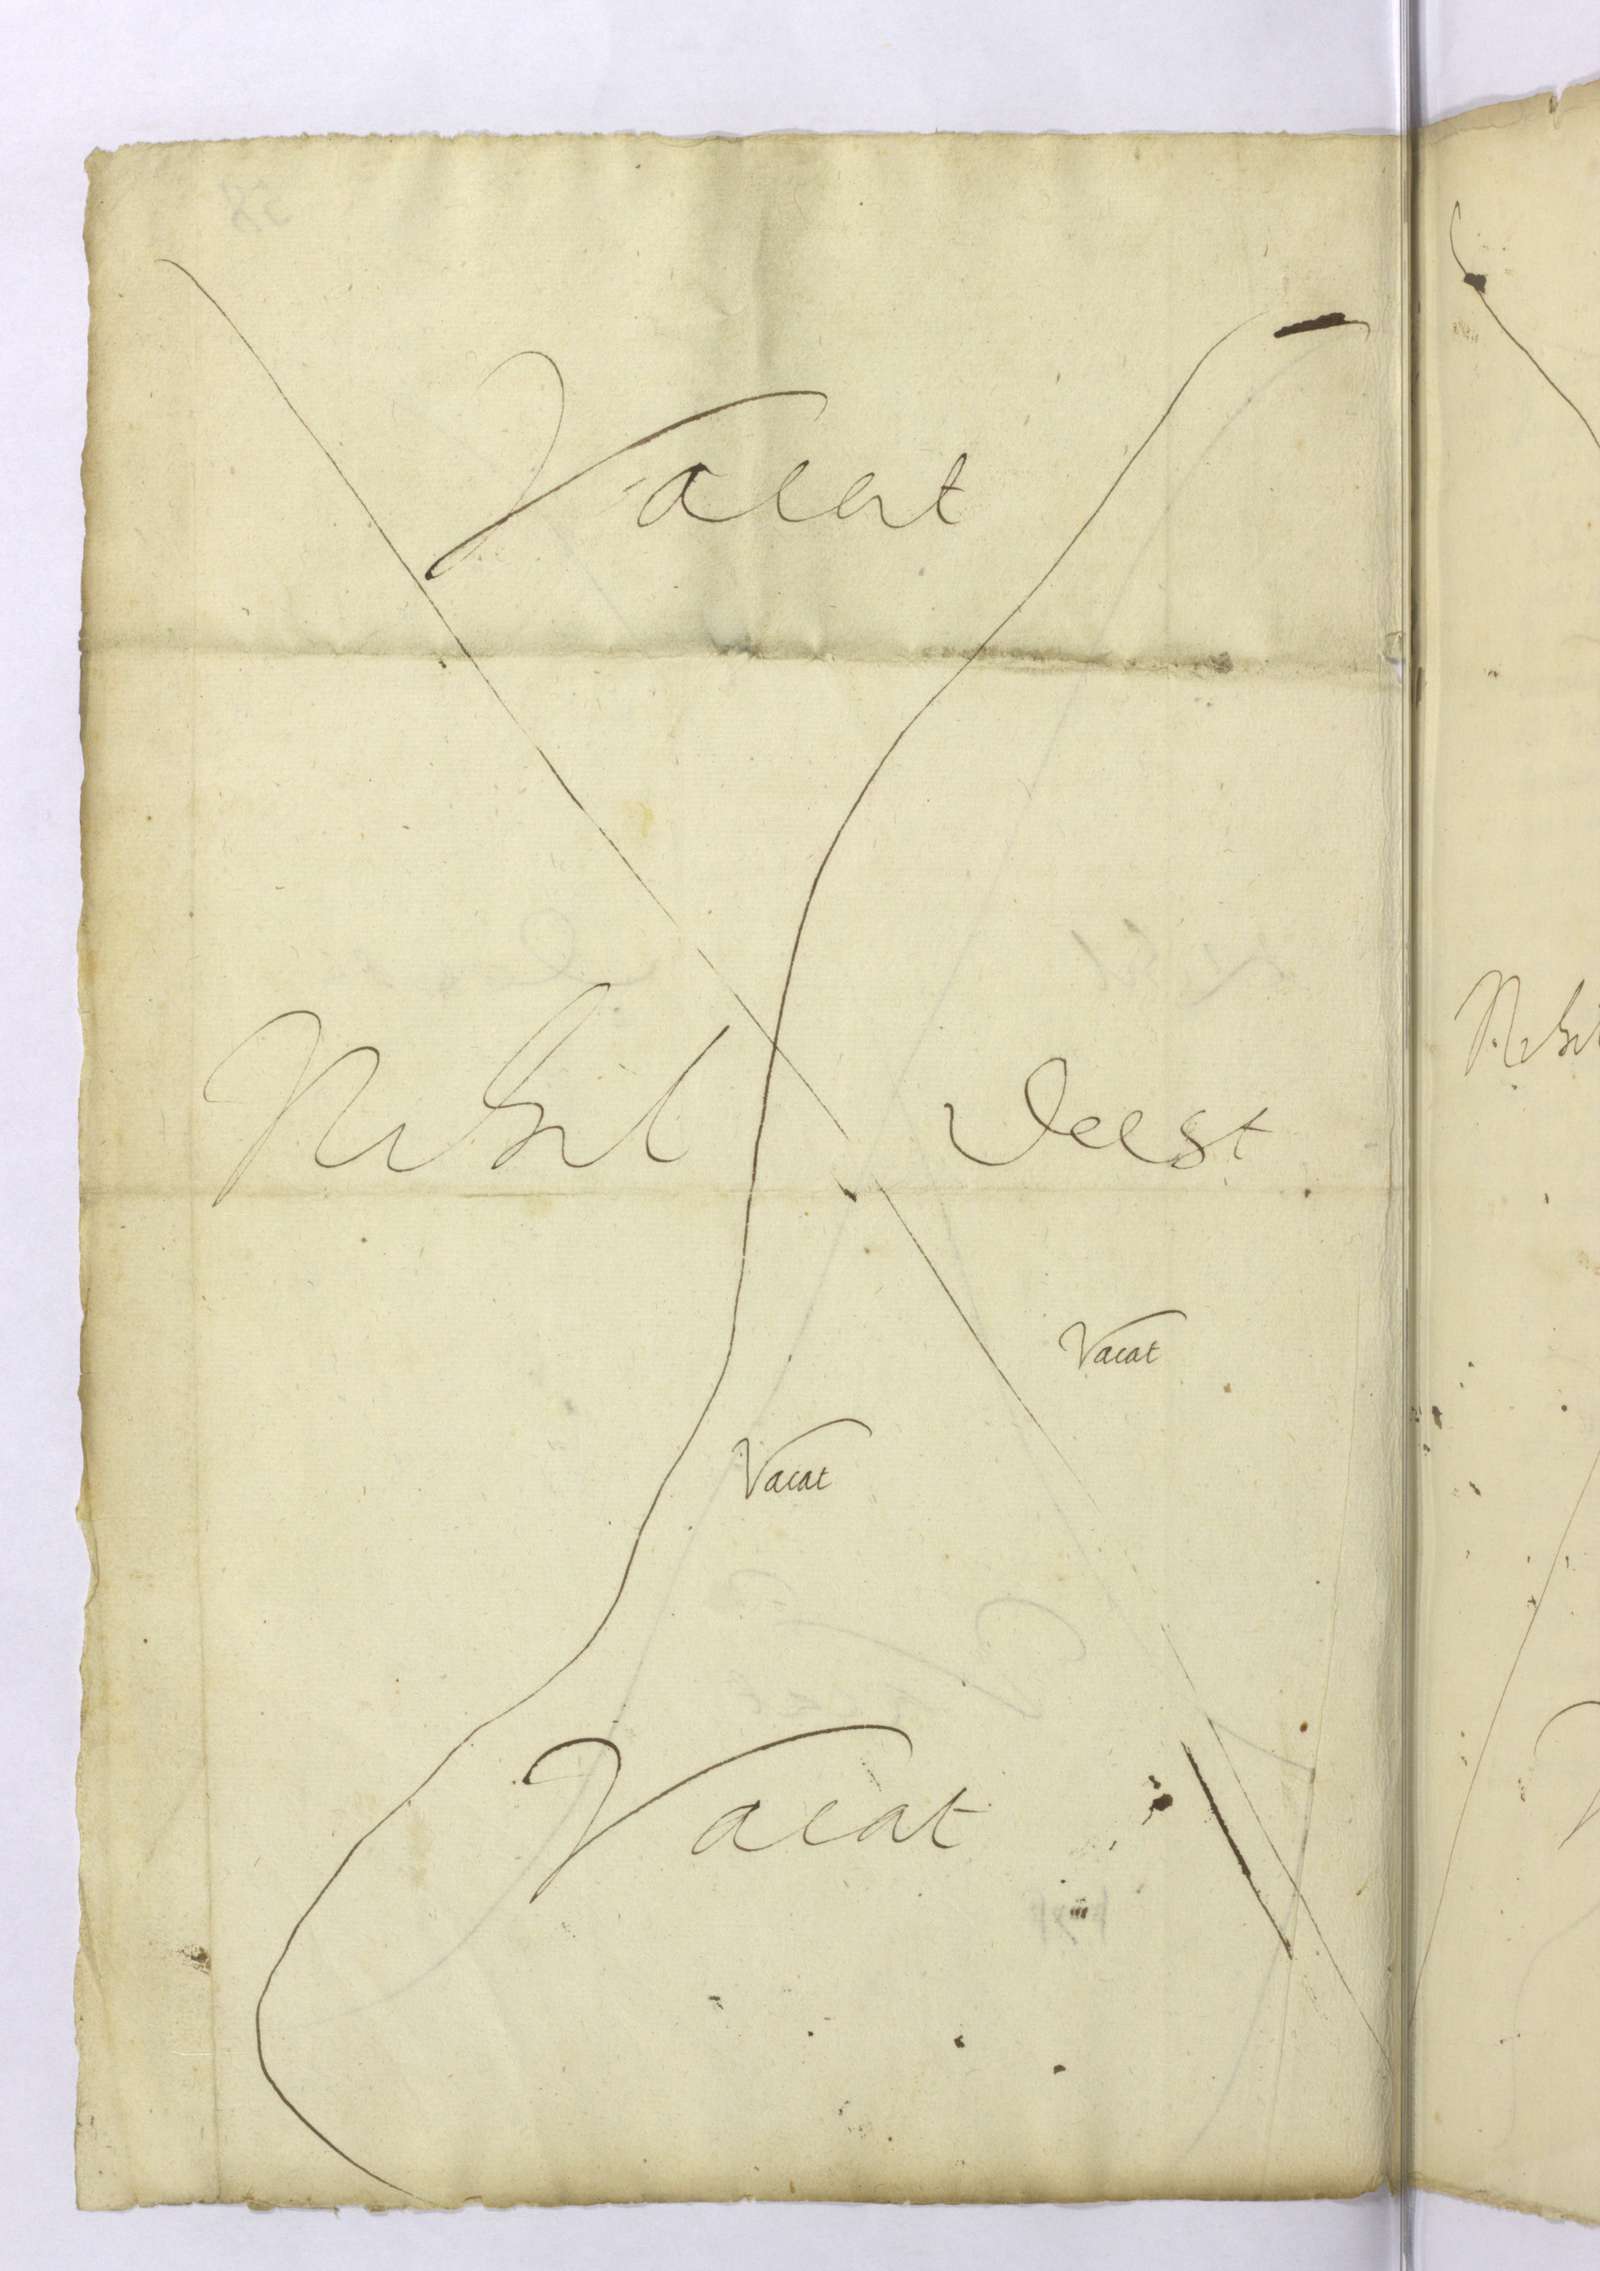 Vacat
Nihil Deest
Nihil
Vacat
Vacat
Vacat